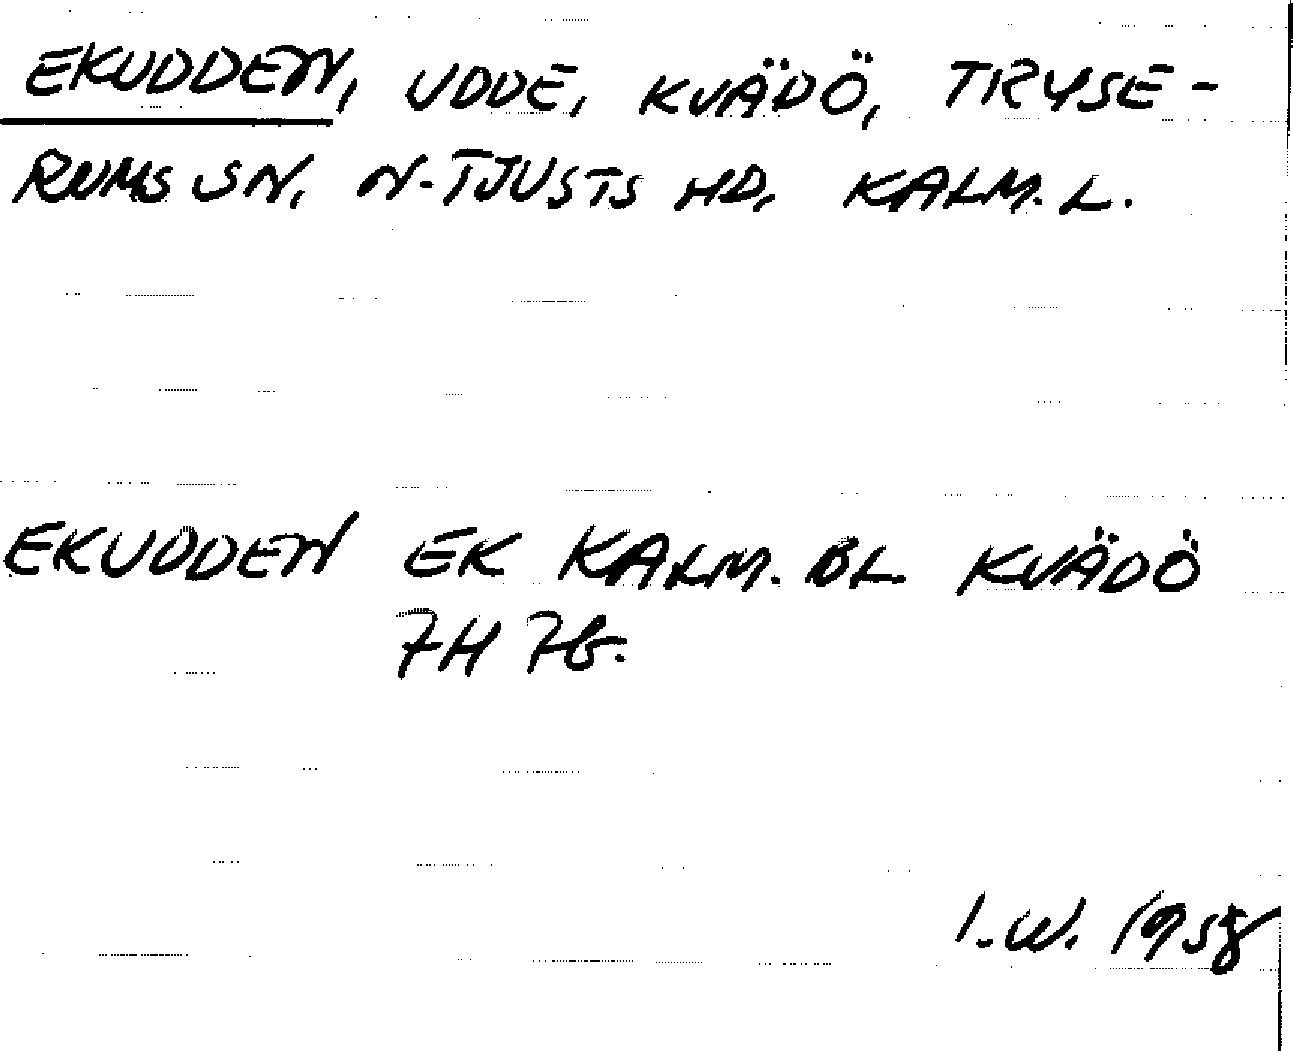 EKUDDEN, UDDE, KVÄDÖ, TRYSE-
RUMS SN, N-TJUSTS HD, KALM. L.
EKUDDEN EK KALM. BL KVÄDÖ
7H 7b.
I.W. 1958